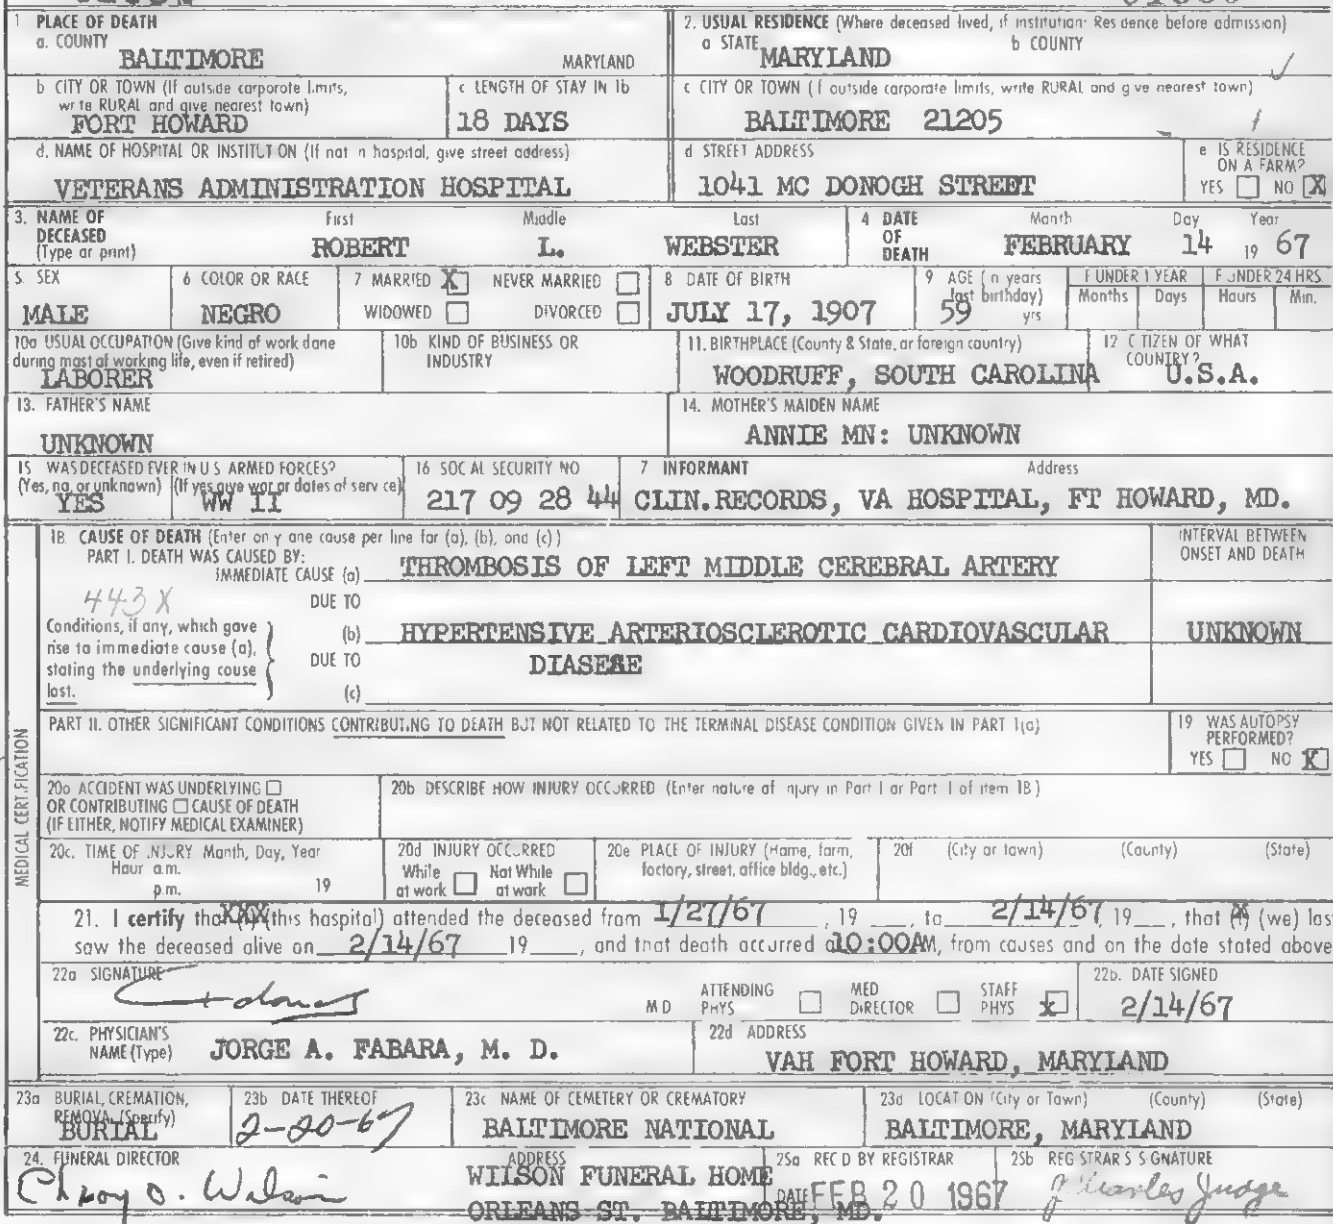 1 PLACE OF DEATH
a. COUNTY
BALTIMORE MARYLAND
2. USUAL RESIDENCE (Where deceased lived, if institution: Residence before admission)
a STATE b COUNTY
MARYLAND
b CITY OR TOWN (If outside corporate limits, write RURAL and give nearest town)
FORT HOWARD
c LENGTH OF STAY IN 1b
18 DAYS
c CITY OR TOWN (If outside corporate limits, write RURAL and give nearest town)
BALTIMORE 21205
d. NAME OF HOSPITAL OR INSTITUTION (If not in hospital, give street address)
VETERANS ADMINISTRATION HOSPITAL
d STREET ADDRESS
1041 MC DONOGH STREET
e IS RESIDENCE ON A FARM?
YES NO X
3. NAME OF DECEASED (Type or print)
First Middle Last
ROBERT L. WEBSTER
4 DATE OF DEATH
Month Day Year
FEBRUARY 14 19 67
5. SEX
MALE
6 COLOR OR RACE
NEGRO
7 MARRIED X NEVER MARRIED
WIDOWED DIVORCED
8 DATE OF BIRTH
JULY 17, 1907
9 AGE (In years last birthday)
59 yrs
IF UNDER 1 YEAR
Months Days
IF UNDER 24 HRS.
Hours Min.
10a USUAL OCCUPATION (Give kind of work done during most of working life, even if retired)
LABORER
10b KIND OF BUSINESS OR INDUSTRY
11. BIRTHPLACE (County & State, or foreign country)
WOODRUFF, SOUTH CAROLINA
12 CITIZEN OF WHAT COUNTRY?
U.S.A.
13. FATHER'S NAME
UNKNOWN
14. MOTHER'S MAIDEN NAME
ANNIE MN: UNKNOWN
15 WAS DECEASED EVER IN U S ARMED FORCES?
(Yes, no, or unknown) (If yes give war or dates of service)
YES WW II
16 SOCIAL SECURITY NO
217 09 28 44
7 INFORMANT Address
CLIN.RECORDS, VA HOSPITAL, FT HOWARD, MD.
MEDICAL CERTIFICATION
18 CAUSE OF DEATH (Enter only one cause per line for (a), (b), and (c))
PART I. DEATH WAS CAUSED BY:
IMMEDIATE CAUSE (a) THROMBOSIS OF LEFT MIDDLE CEREBRAL ARTERY
INTERVAL BETWEEN ONSET AND DEATH
443X
DUE TO
Conditions, if any, which gave rise to immediate cause (a), stating the underlying cause last.
(b) HYPERTENSIVE ARTERIOSCLEROTIC CARDIOVASCULAR UNKNOWN
DUE TO DIASESE
(c)
PART II. OTHER SIGNIFICANT CONDITIONS CONTRIBUTING TO DEATH BUT NOT RELATED TO THE TERMINAL DISEASE CONDITION GIVEN IN PART I(a)
19 WAS AUTOPSY PERFORMED?
YES NO X
20a ACCIDENT WAS UNDERLYING
OR CONTRIBUTING CAUSE OF DEATH
(IF EITHER, NOTIFY MEDICAL EXAMINER)
20b DESCRIBE HOW INJURY OCCURRED (Enter nature of injury in Part I or Part I of item 18)
20c. TIME OF INJURY Month, Day, Year
Hour a.m.
p.m. 19
20d INJURY OCCURRED
While at work Not While at work
20e PLACE OF INJURY (Home, farm, factory, street, office bldg., etc.)
20f (City or town) (County) (State)
21. I certify that XXX (this hospital) attended the deceased from 1/27/67, 19 to 2/14/67, 19, that (I) (we) last
saw the deceased alive on 2/14/67 19, and that death occurred a 10:00AM, from causes and on the date stated above
22a SIGNATURE
M D ATTENDING PHYS MED DIRECTOR STAFF PHYS x
22b. DATE SIGNED
2/14/67
22c. PHYSICIAN'S NAME (Type)
JORGE A. FABARA, M. D.
22d ADDRESS
VAH FORT HOWARD, MARYLAND
23a BURIAL, CREMATION, REMOVAL (Specify)
BURIAL
23b DATE THEREOF
2-20-67
23c NAME OF CEMETERY OR CREMATORY
BALTIMORE NATIONAL
23d LOCATION (City or Town) (County) (State)
BALTIMORE, MARYLAND
24. FUNERAL DIRECTOR
Wilson
ADDRESS
WILSON FUNERAL HOME
ORLEANS ST. BALTIMORE, MD.
25a REC'D BY REGISTRAR
DATE FEB 20 1967
25b REGISTRAR'S SIGNATURE
J Charles Judge